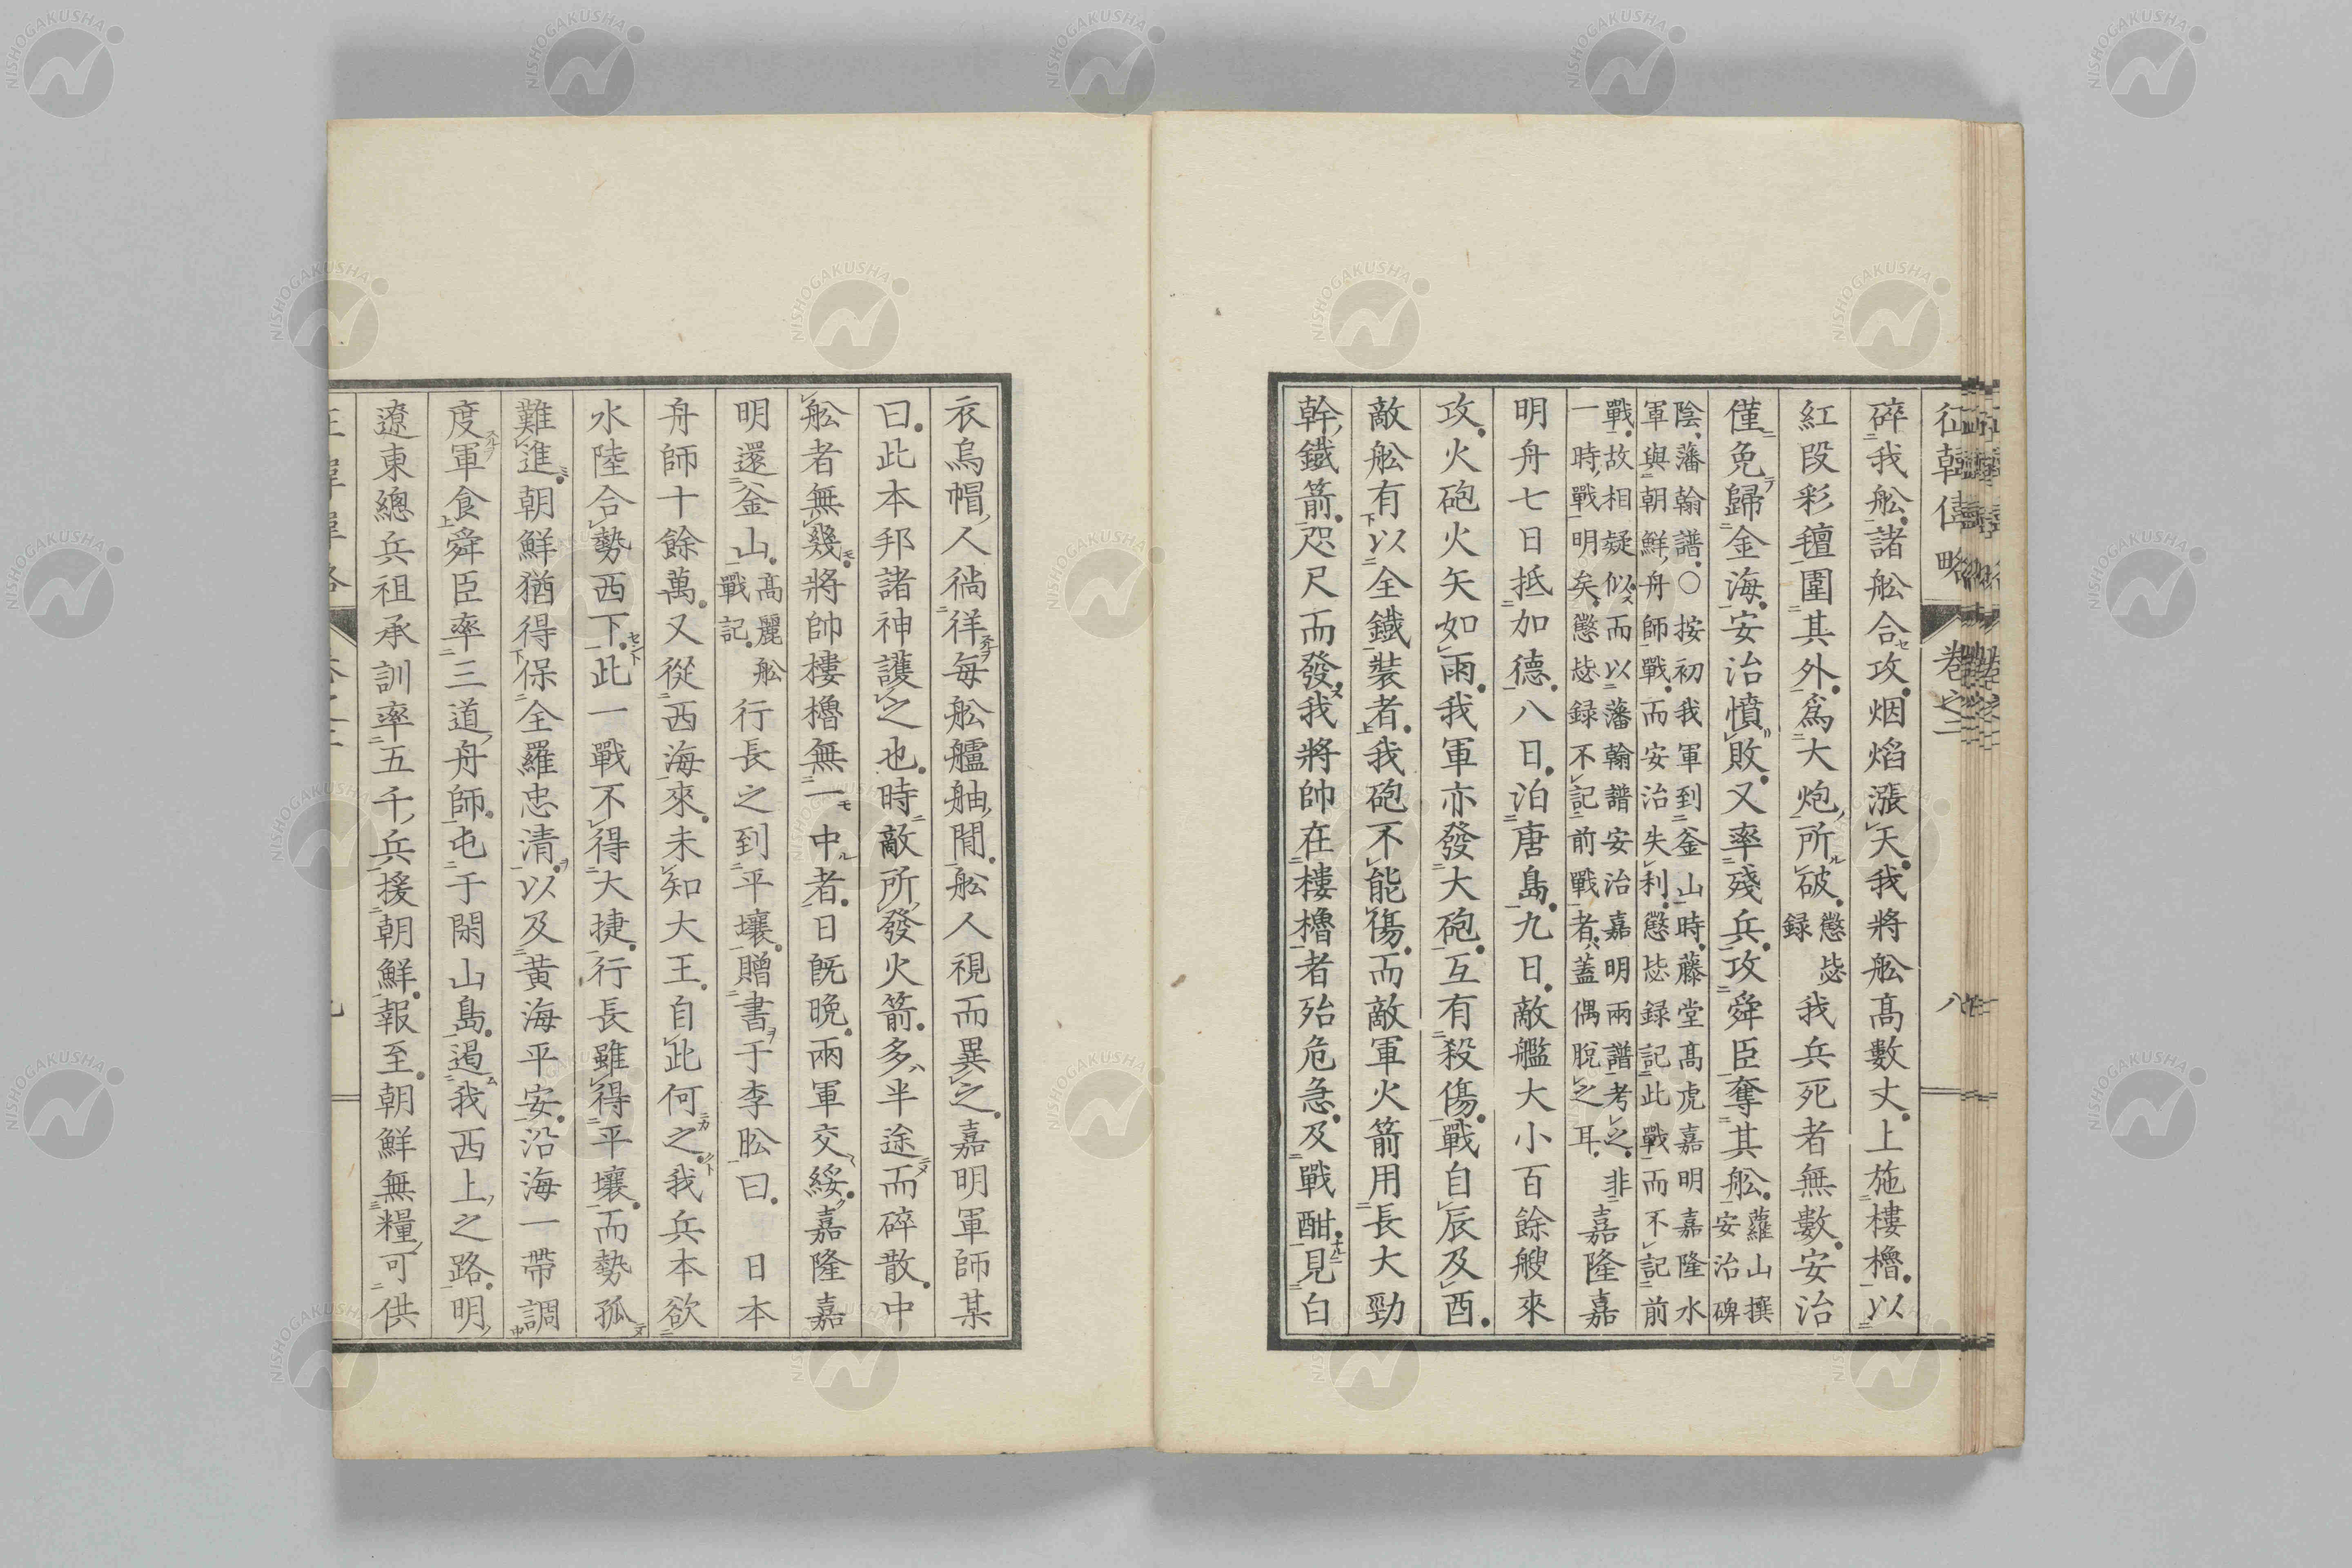 征韓偉略 卷之二 八
碎我舩諸舩合攻烟焰漲天我將舩髙數丈上施樓櫓以
紅段彩氊圍其外爲大炮所破懲毖録我兵死者無數安治
僅免歸金海安治憤敗又率殘兵攻舜臣奪其舩蘿山撰安治碑
陰藩翰譜○按初我軍到釜山時藤堂髙虎嘉明嘉隆水
軍與朝鮮舟師戰而安治失利懲毖録記此戰而不記前
戰故相疑似而以藩翰譜安治嘉明兩譜考之非
一時戰明矣懲毖録不記前戰者蓋偶脫之耳嘉隆嘉
明舟七日抵加德八日泊唐島九日敵艦大小百餘艘來
攻火砲火矢如雨我軍亦發大砲互有殺傷戰自辰及酉
敵舩有以全鐵裝者我砲不能傷而敵軍火箭用長大勁
幹鐵箭咫尺而發我將帥在樓櫓者殆危急及戰酣見白
衣烏帽人徜徉每舩艫舳間舩人視而異之嘉明軍師某
曰此本邦諸神護之也時敵所發火箭多半途而碎散中
舩者無幾將帥樓櫓無一中者日既晩兩軍交綏嘉隆嘉
明還釜山髙麗舩戰記行長之到平壤贈書于李昖曰 日本
舟師十餘萬又從西海來未知大王自此何之我兵本欲
水陸合勢西下此一戰不得大捷行長雖得平壤而勢孤
難進朝鮮猶得保全羅忠清以及黄海平安沿海一帶調
度軍食舜臣率三道舟師屯于閑山島遏我西上之路明
遼東總兵祖承訓率五千兵援朝鮮報至朝鮮無糧可供